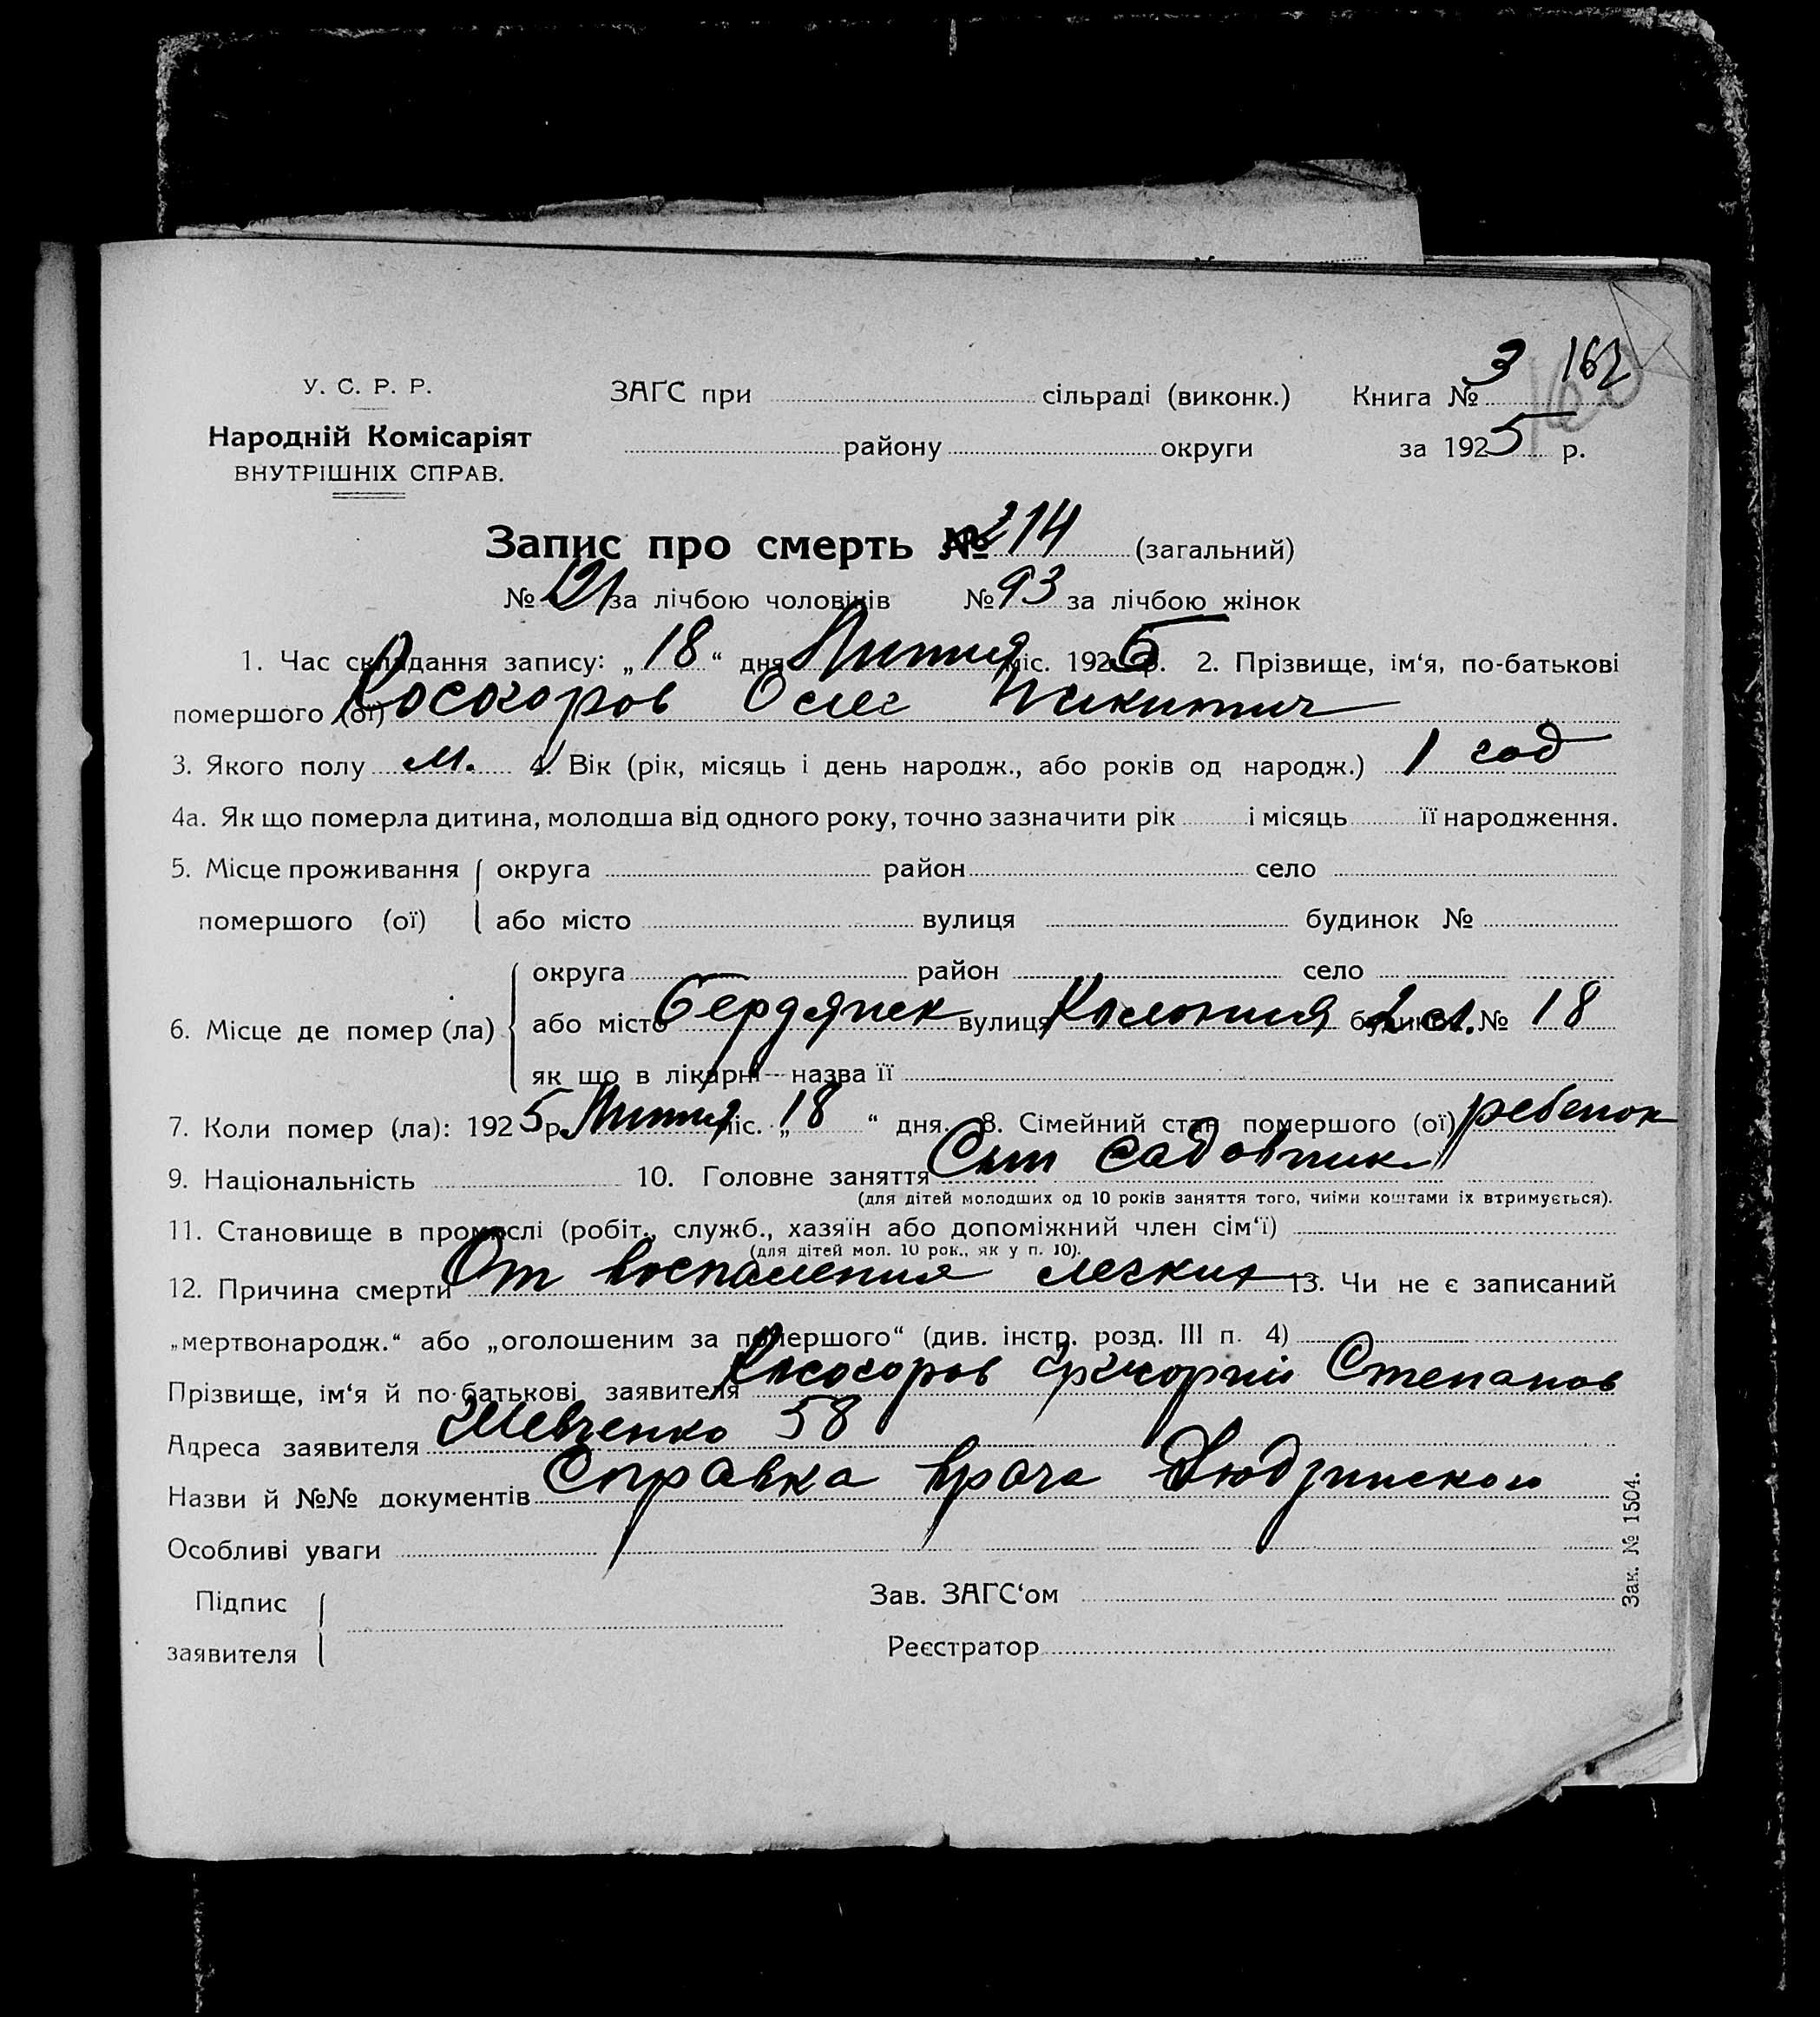 3 162
160
У. С. Р. Р.
ЗАГС при сільраді (виконк.) Книга №
Народній Комісаріят
ВНУТРІШНІХ СПРАВ.
району округи за 1925 р.
Запис про смерть № 214 (загальний)
№ 121 за лічбою чоловіків № 93 за лічбою жінок
1. Час складання запису: „18“ дня Липня міс. 1925 р. 2. Прізвище, ім‘я, по-батькові
помершого (ої) Косогоров Олег Никитич
3. Якого полу м. 4. Вік (рік, місяць і день народж., або років од народж.) 1 год
4а. Як що померла дитина, молодша від одного року, точно зазначити рік і місяць її народження.
5. Місце проживання округа район село
помершого (ої) або місто вулиця будинок №
округа район село
6. Місце де помер (ла) або місто Бердянск вулиця Колония 2 ст. будинок № 18
як що в лікарні—назва її
7. Коли помер (ла): 1925 р. Липня міс. „18“ дня. 8. Сімейний стан помершого (ої) ребенок
9. Національність 10. Головне заняття Сын садовника
(для дітей молодших од 10 років заняття того, чиїми коштами їх втримується).
11. Становище в промислі (робіт., служб., хазяїн або допоміжний член сім‘ї)
(для дітей мол. 10 рок., як у п. 10).
12. Причина смерти От воспаления легких 13. Чи не є записаний
„мертвонародж.“ або „оголошеним за помершого“ (див. інстр. розд. III п. 4)
Прізвище, ім‘я й по-батькові заявителя Косогоров Григорий Степанов
Адреса заявителя Шевченко 58
Назви й №№ документів Справка врача
Особливі уваги
Підпис
заявителя
Зав. ЗАГС‘ом
Реєстратор
Зак. № 1504.